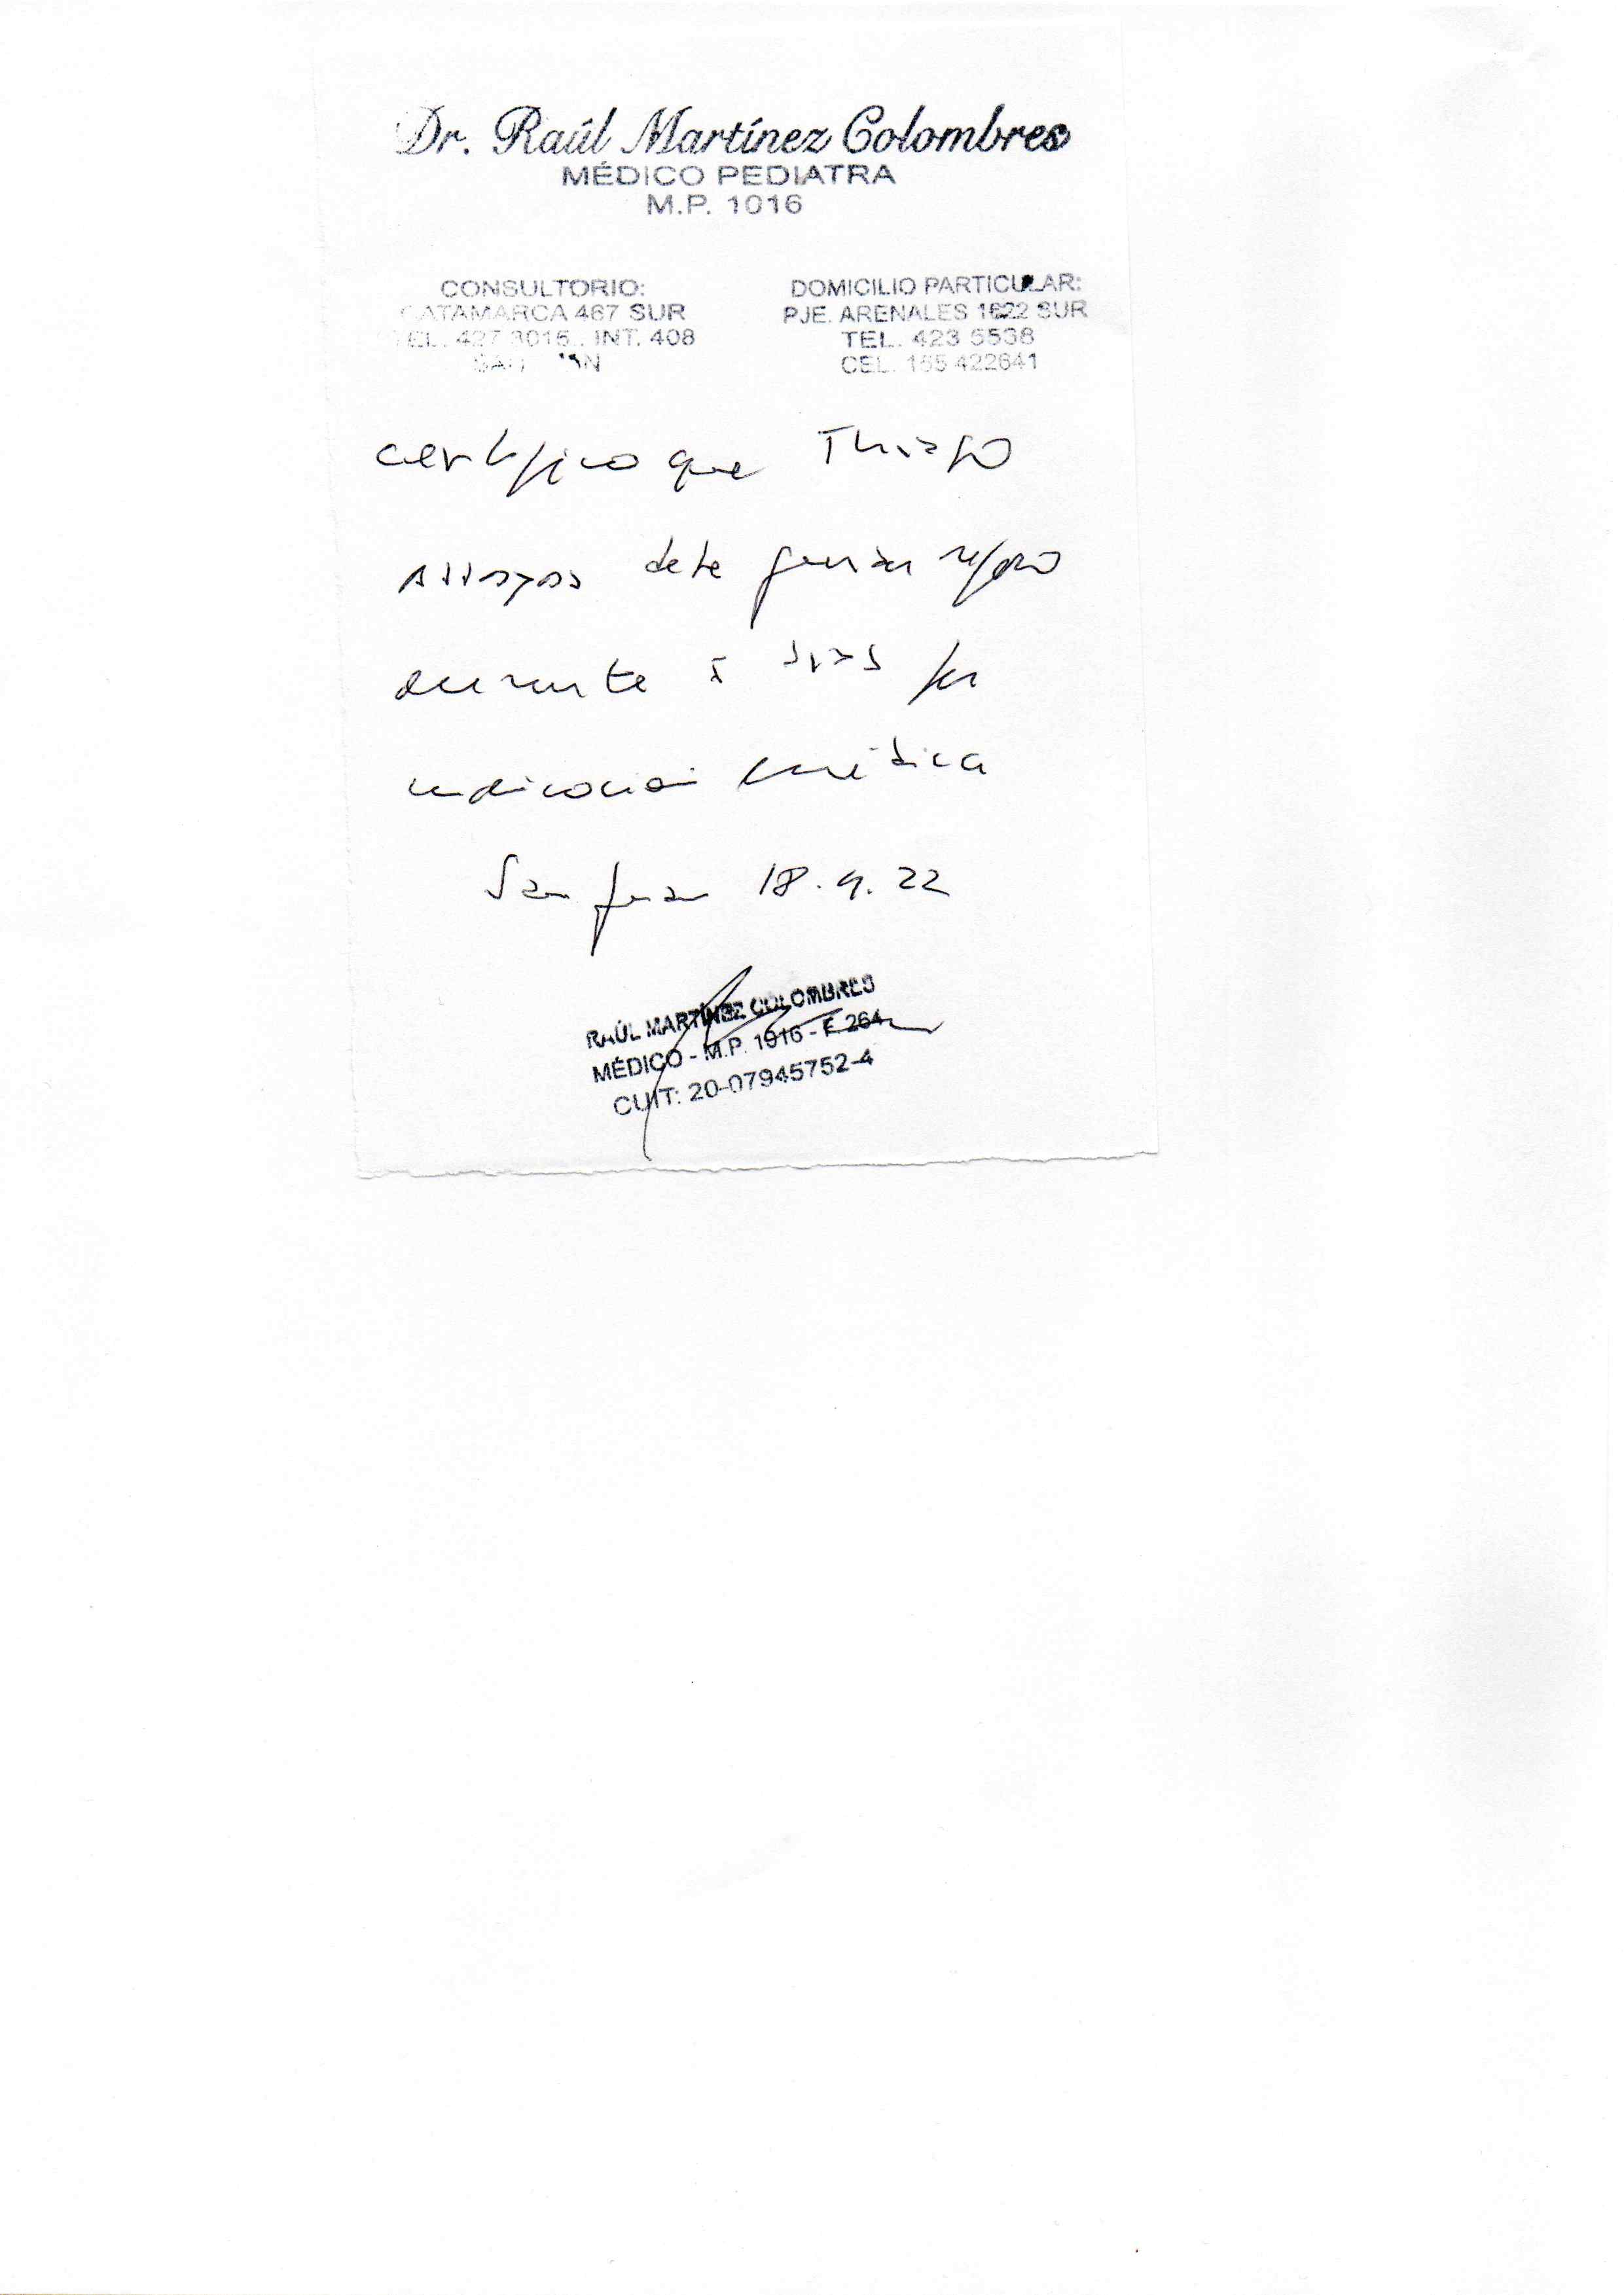 Dr. Raúl Martínez Colombres
MÉDICO PEDIATRA
M.P. 1016
CONSULTORIO:
CATAMARCA 467 SUR
TEL. 427 3015 . INT. 408
SAN JUAN
DOMICILIO PARTICULAR:
PJE. ARENALES 1622 SUR
TEL. 423 5538
CEL. 155 422641
certifico que Thiago
debe guardar reposo
durante días por
indicación médica
San Juan 18.9.22
RAÚL MARTÍNEZ COLOMBRES
MÉDICO - M.P. 1016 - F 264
CUIT: 20-07945752-4